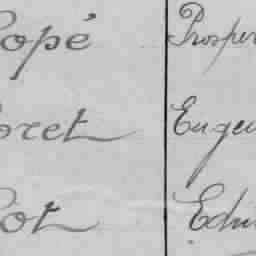 opé Prosper
oret Euge
ot Edm